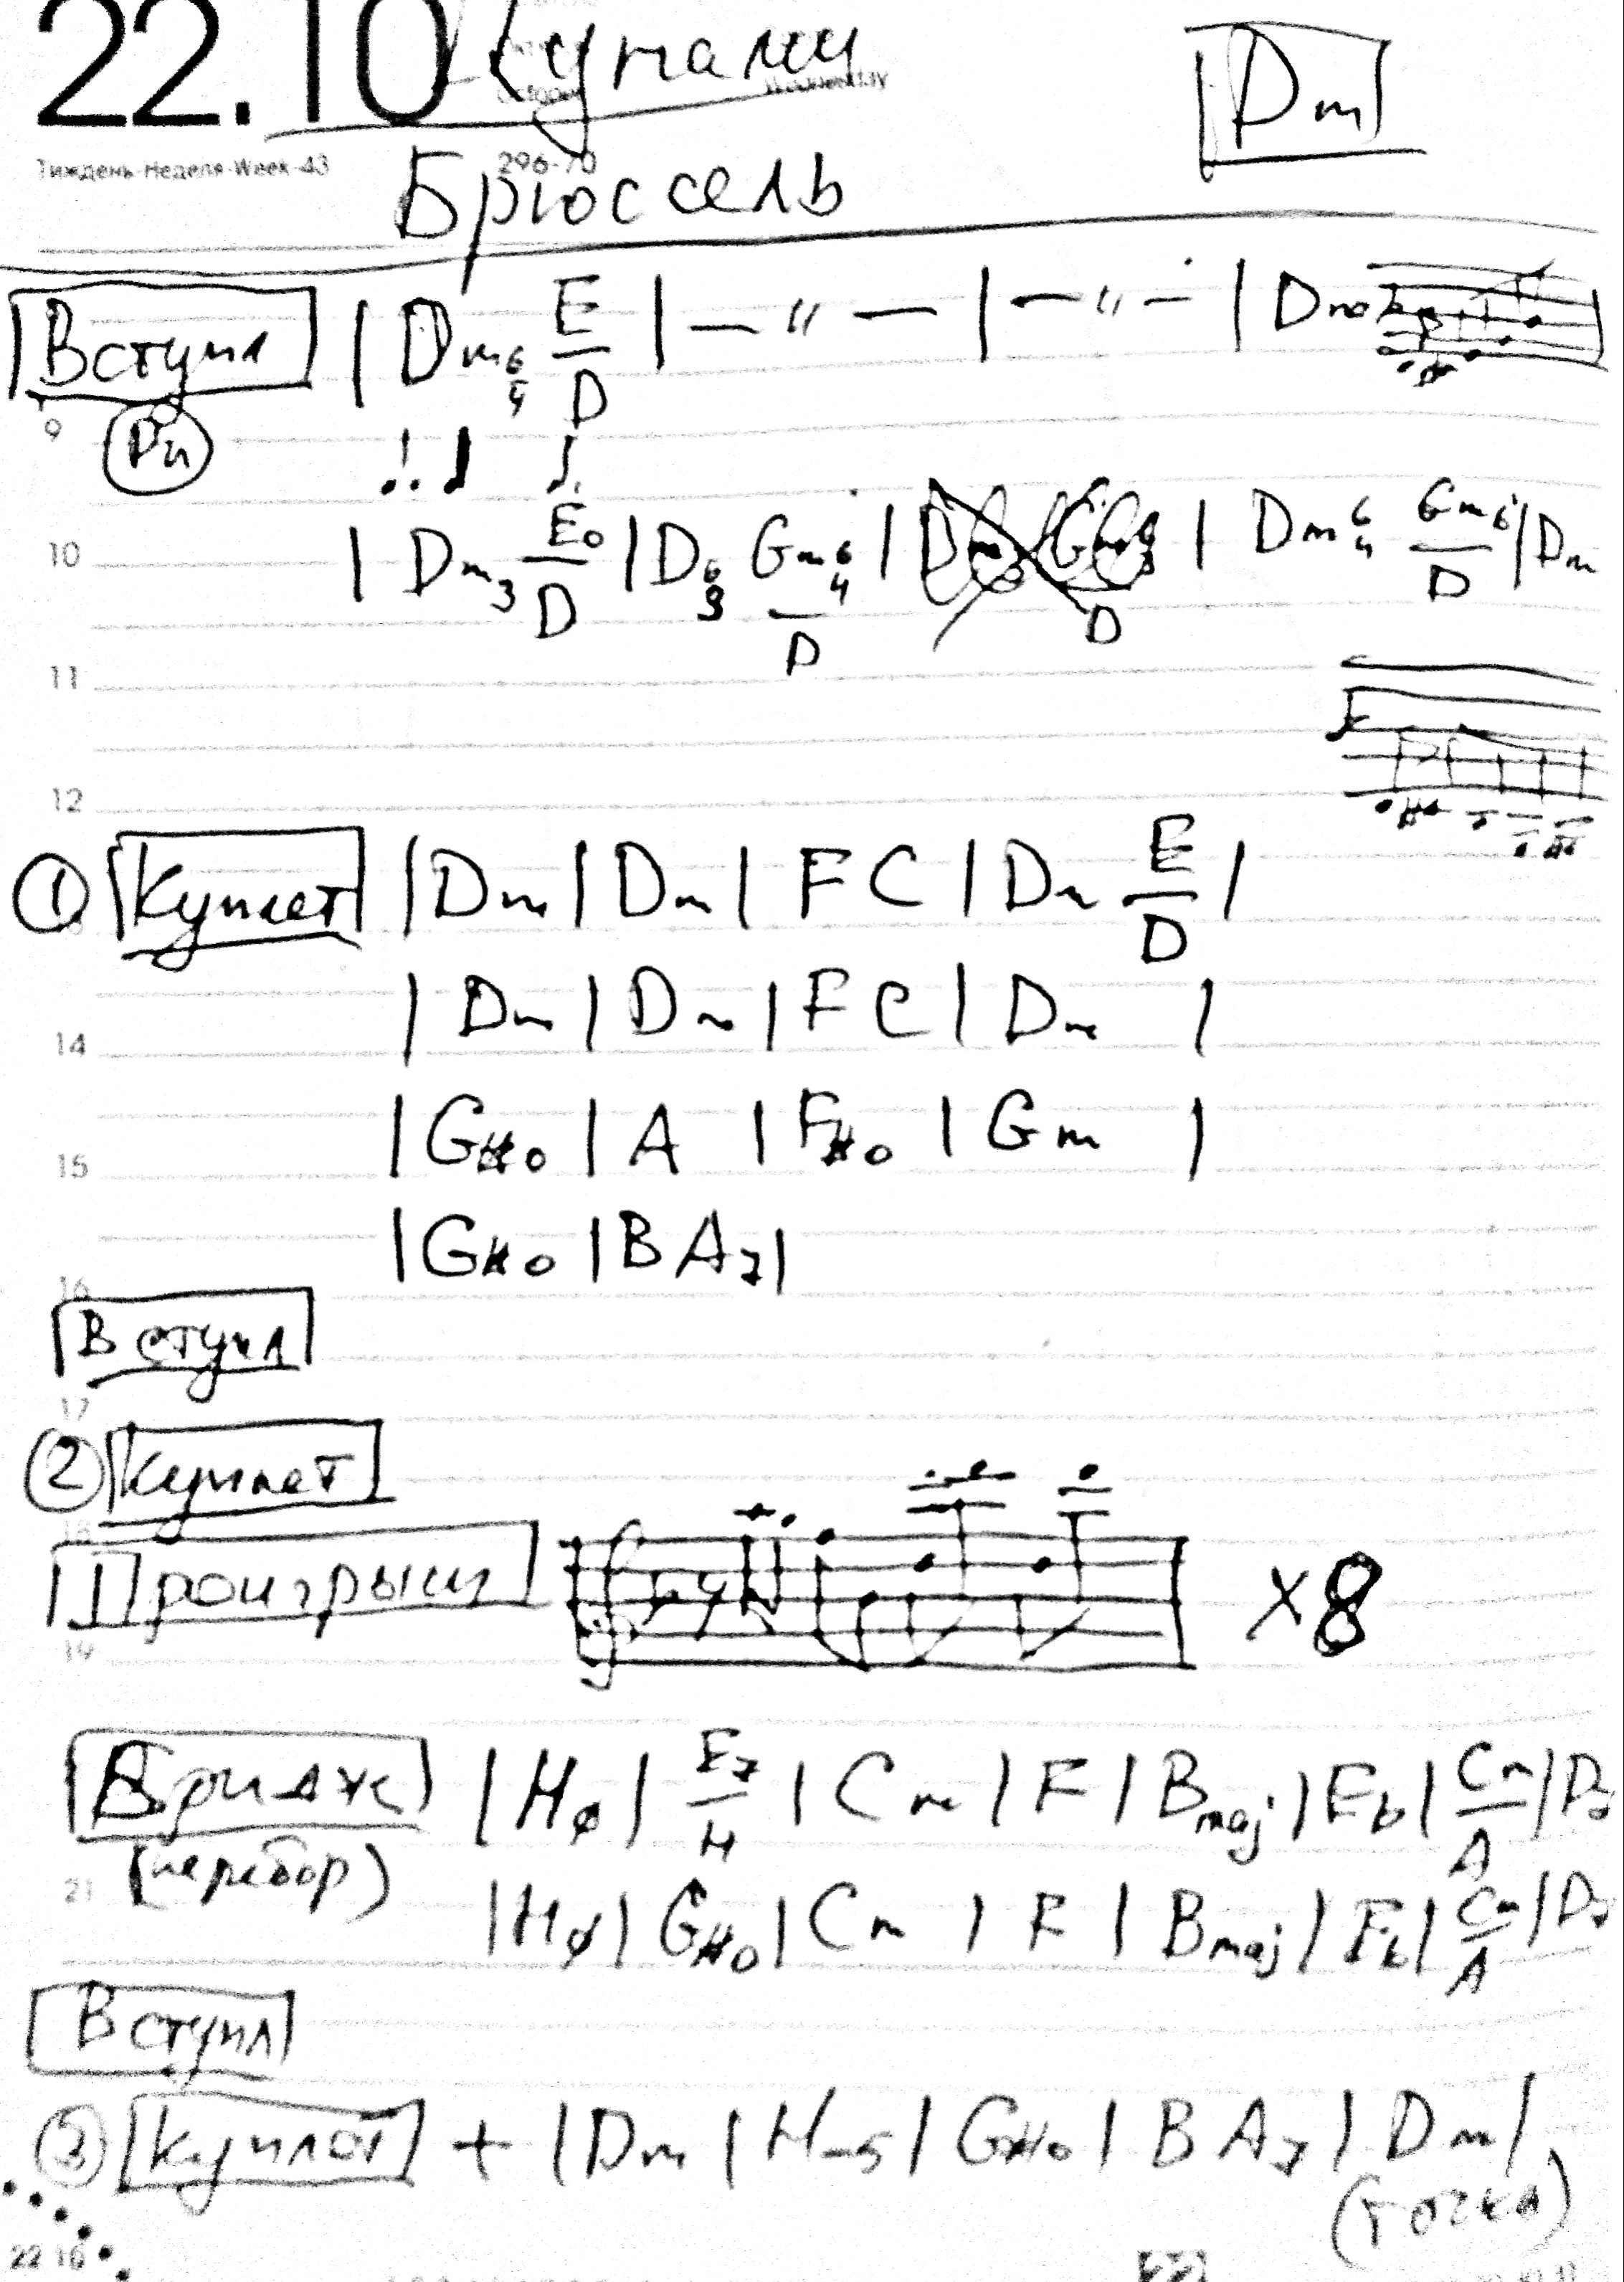 22.10
Dm
Тиждень-Неделя-Week-43 296-70
Брюссель
Вступл | Dm6/4 E/D | —〃— | —〃— | Dm
9
10 | Dm3 E0/D | D6/3 Gm6/4/D | Dm6/4 Gm6/D | Dm
11
12
① Куплет | Dm | Dm | F C | Dm E/D |
14 | Dm | Dm | F C | Dm |
15 | G#0 | A | F#0 | Gm |
| G#0 | B A7 |
16
Вступл
17
② Куплет
18
Проигрыш x8
19
Бридж | Hø | E7/H | Cm | F | Bmaj | Eb | Cm/A | D7
21 (перебор) | Hø | G#0 | Cm | F | Bmaj | Eb | Cm/A | D7
Вступл
③ Куплет + | Dm | H-5 | G#0 | B A7 | Dm |
(точка)
22